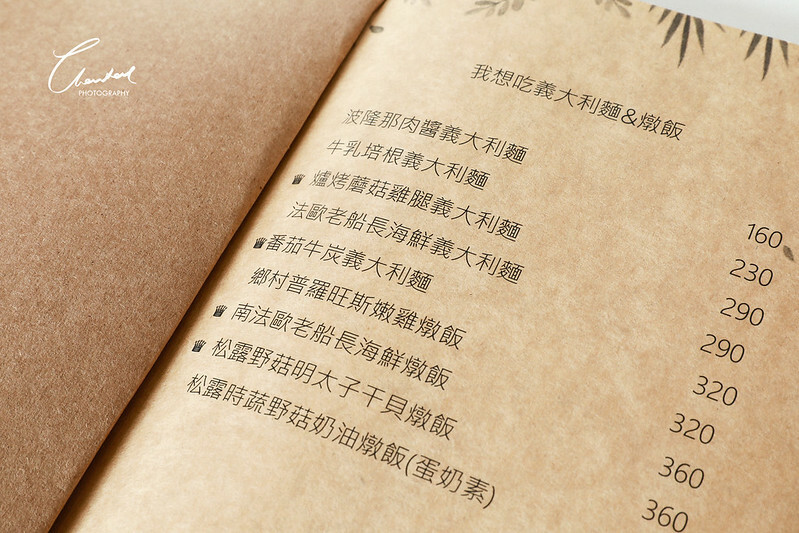 PHOTOGRAPHY
我想吃義大利麵&燉飯
波隆那肉醬義大利麵 160
牛乳培根義大利麵 230
爐烤蘑菇雞腿義大利麵 290
法歐老船長海鮮義大利麵 290
番茄牛炭義大利麵 320
鄉村普羅旺斯嫩雞燉飯 320
南法歐老船長海鮮燉飯 360
松露野菇明太子干貝燉飯 360
松露時蔬野菇奶油燉飯(蛋奶素)